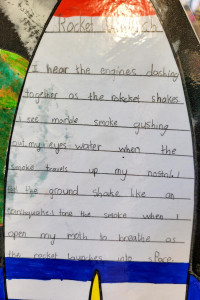 Rocket Launch
I hear the engines clashing
together as the rocket shakes
I see marble smoke gushing
out. my eyes water when the
smoke travels up my nostril I
the ground shake like an
earthquake. I tase the smoke when I
open my moth to breathe as
the rocket launches into space.